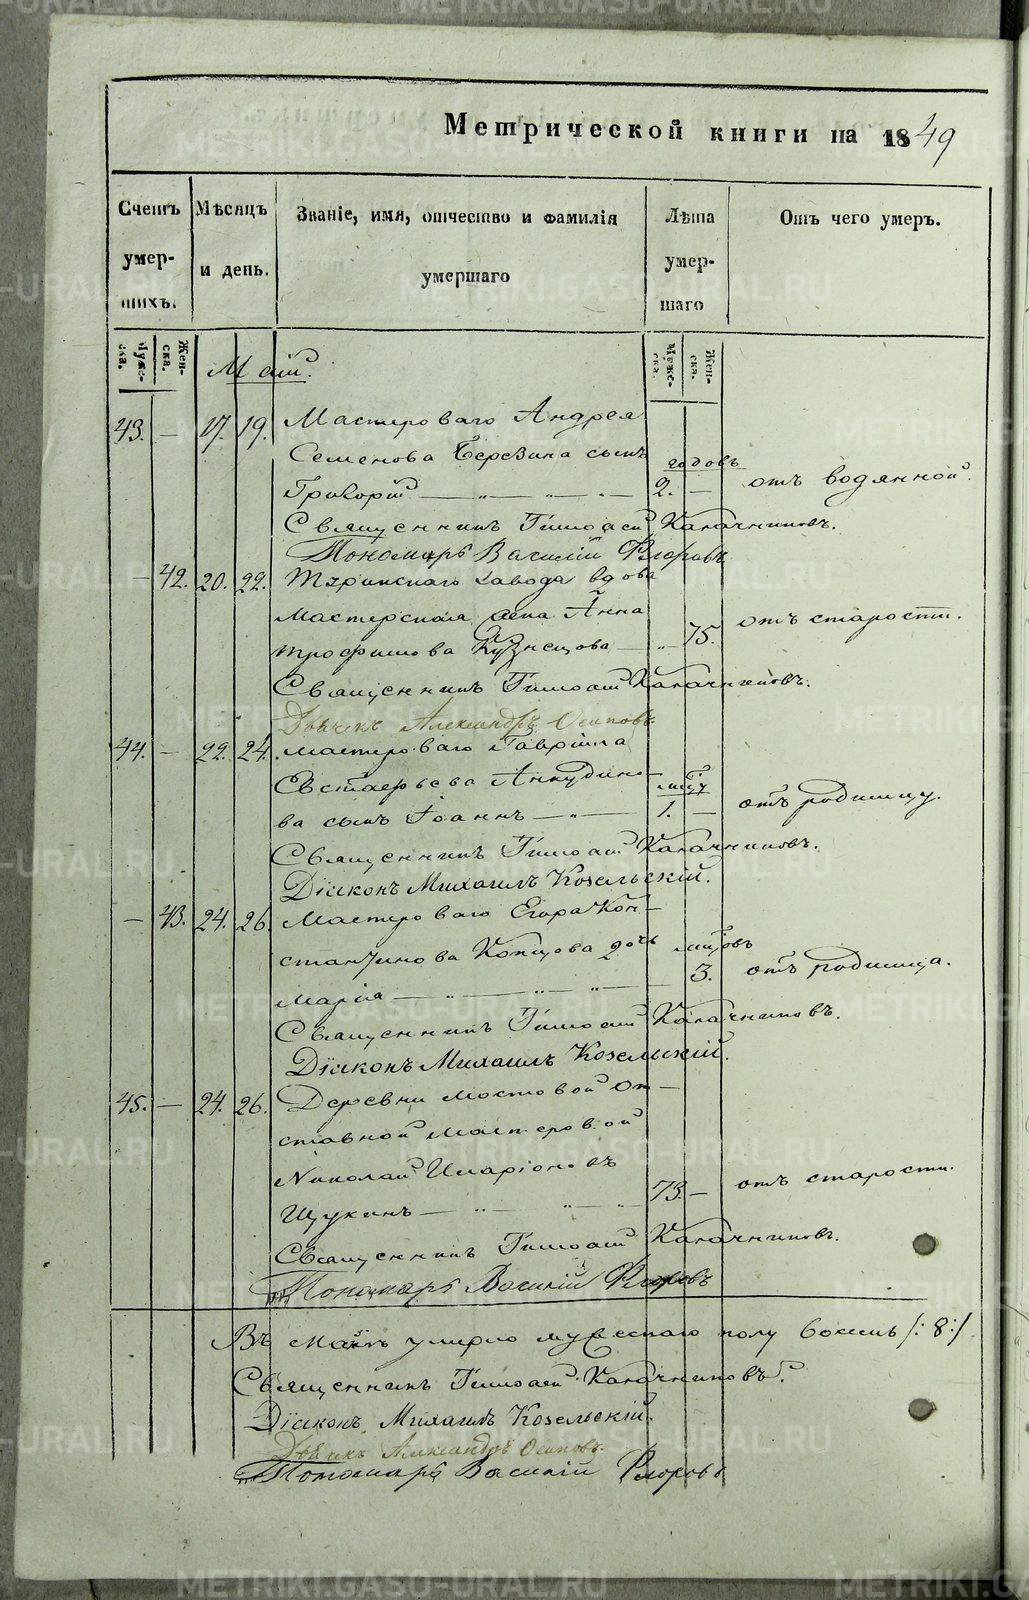 Метрической книги на 1849
Счетъ умершихъ.
Мѣсяцъ и день.
Званіе, имя, отчество и фамилія умершаго
Лѣта умершаго
Отъ чего умеръ.
Мужеска.
Женска.
Маій.
Мужеска.
Женска.
43. — 17. 19. Мастероваго Андрея
Семенова Березина сынъ
годовъ
Григорій 2. — отъ водянной.
Священникъ Тимоѳей Калачниковъ.
Пономарь Василій Флоровъ
— 42. 20. 22. Туринскаго завода вдова
Мастерская жена Анна
Трофимова Кузнецова — 75. отъ старости.
Священникъ Тимоѳей Калачниковъ.
Дьячекъ Александръ Осиповъ
44. — 22. 24. Мастероваго Гавріила
Евстафьева Анкудино-
ва сынъ Іоаннъ 1. — отъ родимцу.
Священникъ Тимоѳей Калачниковъ.
Діаконъ Михаилъ Козельскій.
— 43. 24. 26. Мастероваго Егора Кон-
стантинова Копцова дочь
Марія 3. отъ родимца.
Священникъ Тимоѳей Калачниковъ.
Діаконъ Михаилъ Козельскій.
45. — 24. 26. Деревни Мостовой от-
ставной мастеровой
Николай Иларіоновъ
Щукинъ 73. — отъ старости.
Священникъ Тимоѳей Калачниковъ.
Пономарь Василій Флоровъ
Въ маѣ умерло мужескаго полу восемь /:8:/
Священникъ Тимоѳей Калачниковъ.
Діаконъ Михаилъ Козельскій.
Дьячекъ Александръ Осиповъ.
Пономарь Василій Флоровъ
METRIKI.GASO-URAL.RU